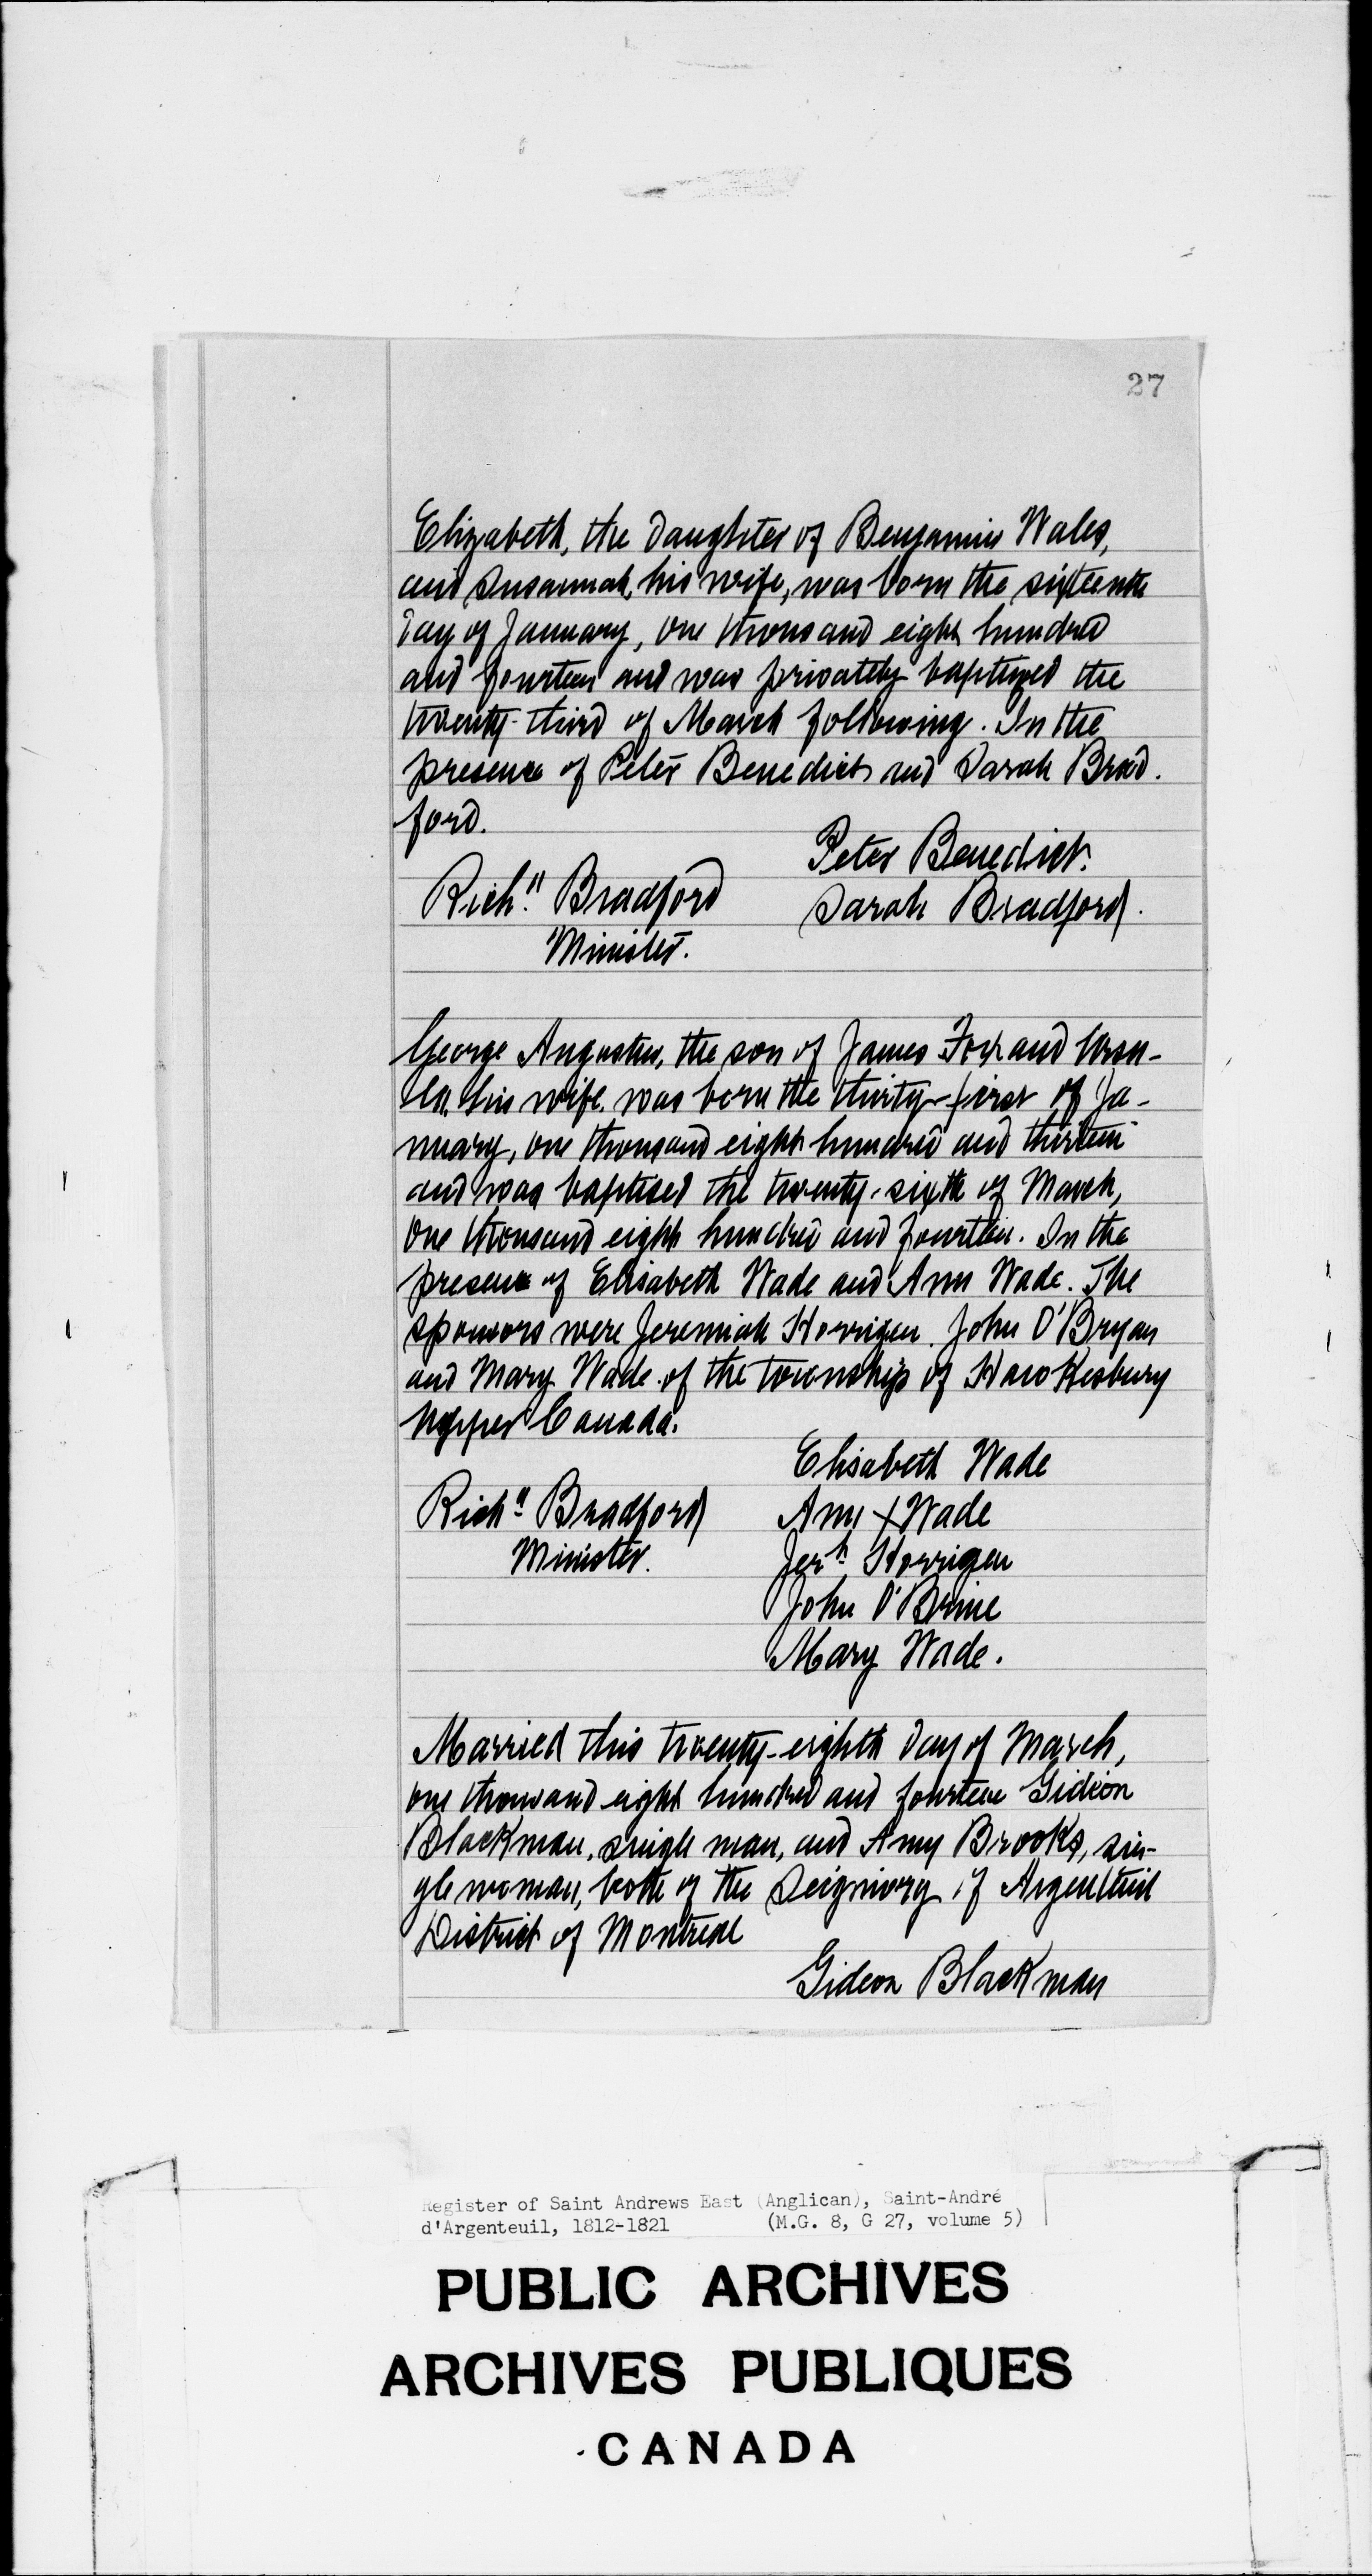 27
Elizabeth, the daughter of Benjamin Wales,
and Susannah, his wife, was born the sixteenth
day of January, one thousand eight hundred
and fourteen and was privately baptized the
twenty-third of March following. In the
presence of Peter Benedict and Sarah Brad-
ford.
Peter Benedict.
Richd. Bradford
Sarah Bradford.
Minister.
George Augustus, the son of James Fox and Ursu-
la, his wife, was born the thirty-first of Ja-
nuary, one thousand eight hundred and thirteen
and was baptised the twenty-sixth of March,
one thousand eight hundred and fourteen. In the
presence of Elisabeth Wade and Ann Wade. The
sponsors were Jeremiah Horrigen, John O'Bryan
and Mary Wade of the township of Hawkesbury
Upper Canada.
Elisabeth Wade
Richd. Bradford
Ann X Wade
Minister.
Jerh. Horrigen
John O'Brine
Mary Wade.
Married this twenty-eighth day of March,
one thousand eight hundred and fourteen Gideon
Blackman, single man, and Amy Brooks, sin-
gle woman, both of the Seigniory of Argenteuil
District of Montreal
Gideon Blackman
Register of Saint Andrews East (Anglican), Saint-André
d'Argenteuil, 1812-1821 (M.G. 8, G 27, volume 5)
PUBLIC ARCHIVES
ARCHIVES PUBLIQUES
CANADA